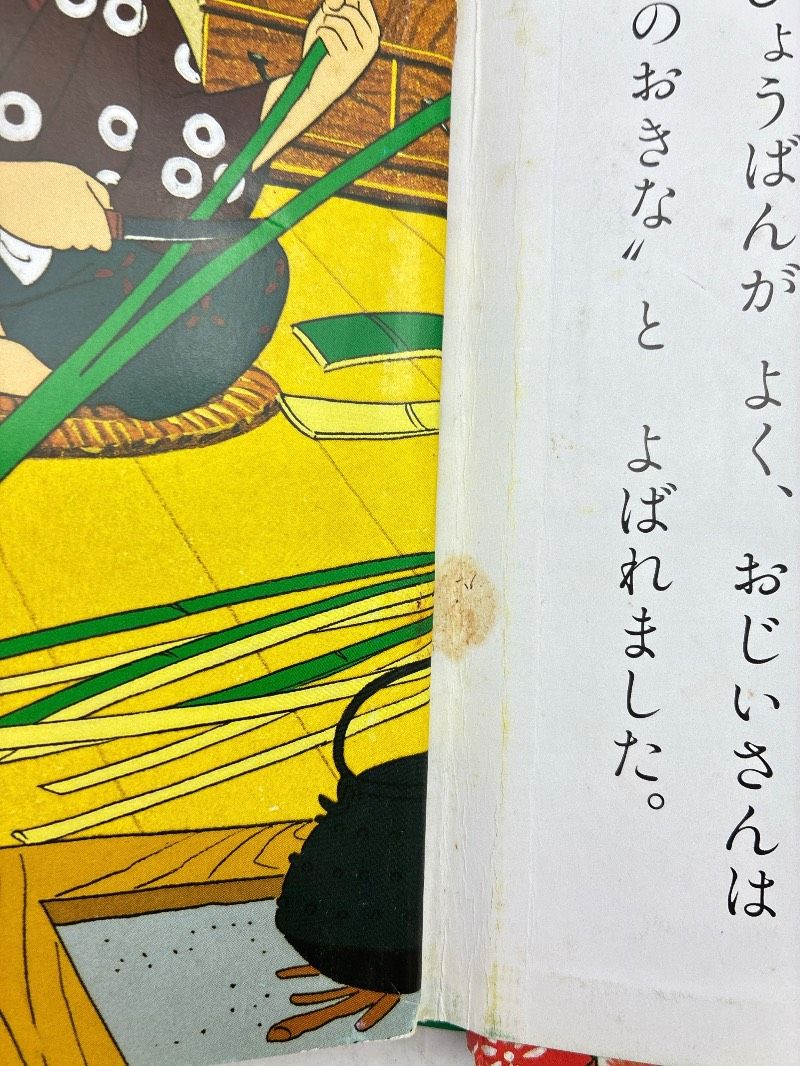 ょうばんが よく、 おじいさんは
のおきな〟と よばれました。